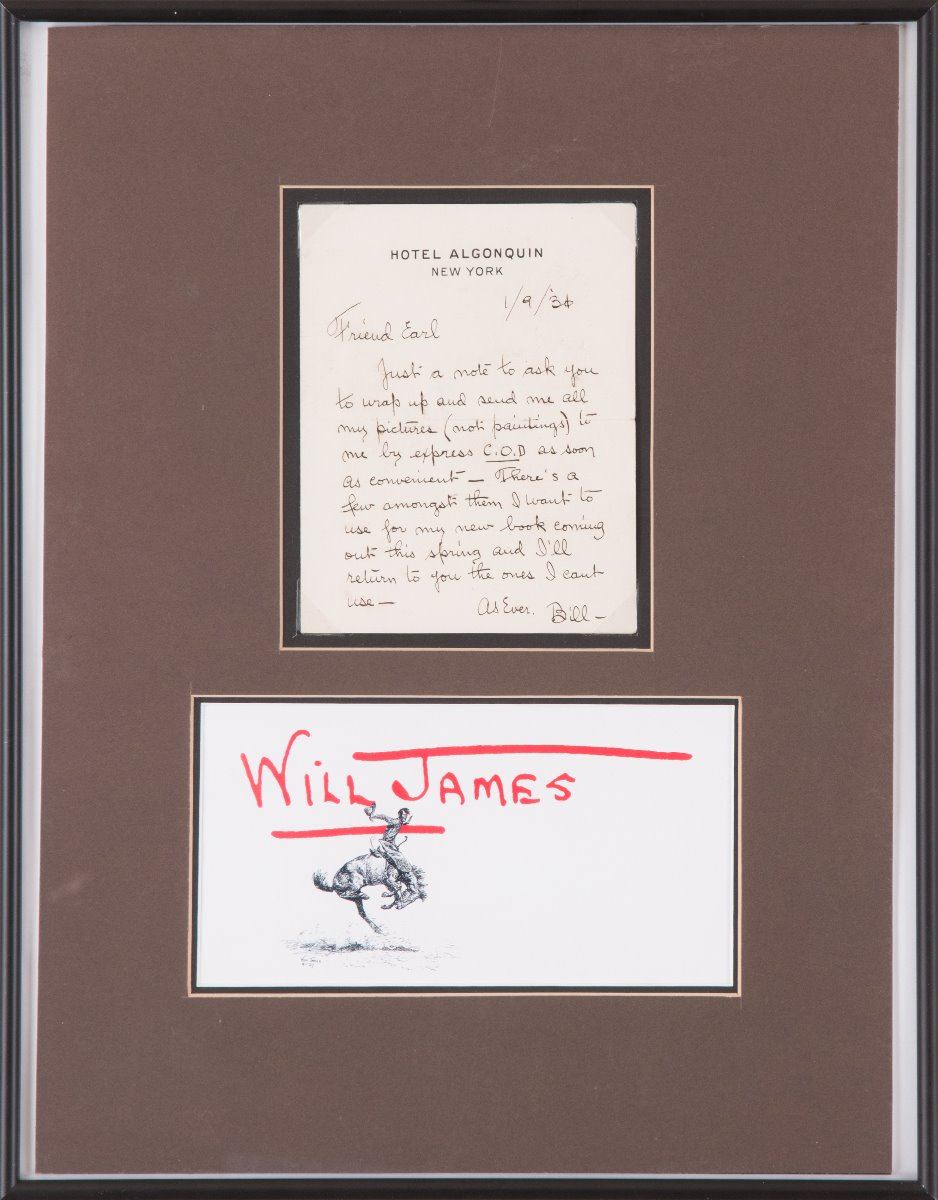 HOTEL ALGONQUIN
NEW YORK
1/9/'34
Friend Earl
Just a note to ask you
to wrap up and send me all
my pictures (not paintings) to
me by express C.O.D as soon
as convenient — There's a
few amongst them I want to
use for my new book coming
out this spring and I'll
return to you the ones I cant
use —
As Ever. Bill —
WILL JAMES